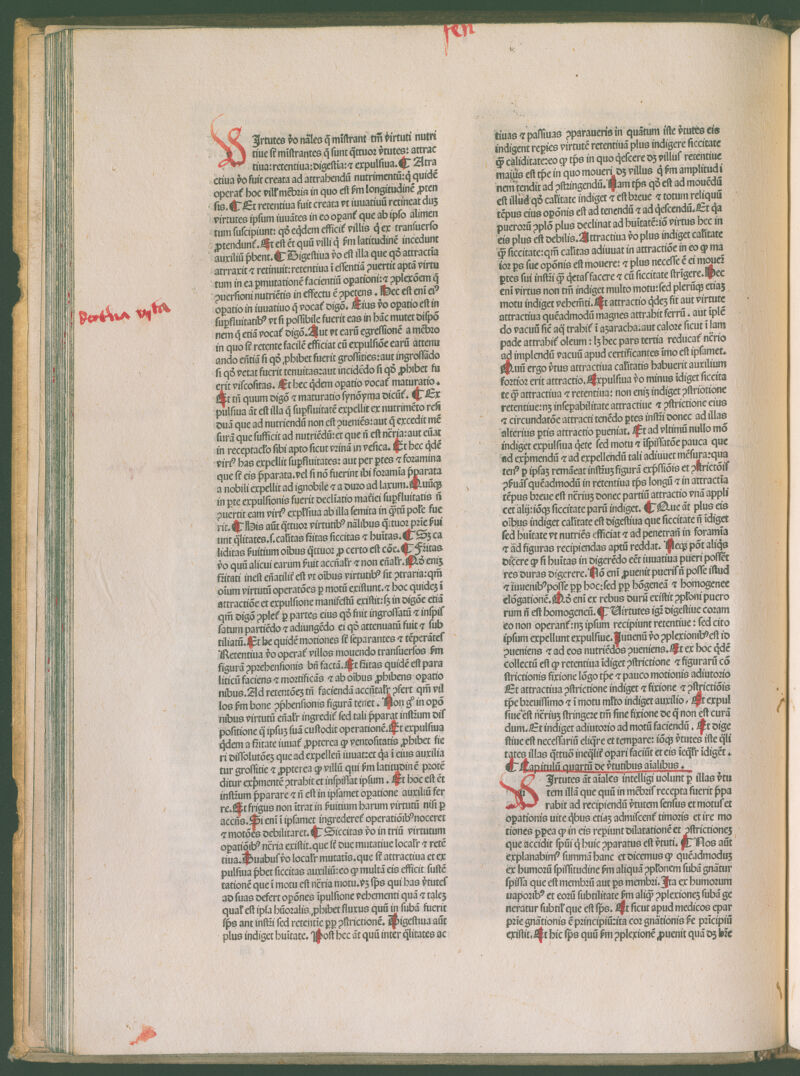 fen
Uirtutes v̄o nāles q̄ mīstrant tm̄ v̄irtuti nutri
tiue sē mīstrantes q̄ sunt q̄ttuor v̄tutes: attrac
tiua: retentiua: digestīa: ⁊ expulsiua. ¶ Attra
ctiua v̄o fuit creata ad attrahendū nutrimentū: q̄ quidē
operat̄ hoc vill̄ mēbris in quo est s̄m longitudinē ꝓten
sis. ¶ Et retentiua fuit creata vt iuuatiuū retineat duꝫ
virtutes ipsum iuuātes in eo opant̄ que ab ipso alimen
tum suscipiunt: qd̄ eq̄dem efficit̄ villis q̄ ex transuerso
ꝓtendunt̄. Et est ēt quū villi q̄ s̄m latitudinē incedunt
auxiliū p̄bent. ¶ Digestiua v̄o est illa que qd̄ attractia
attraxit ⁊ retinuit: retentiua ī essentiā ꝯuertit aptā virtu
tum in ea ꝑmutationē facientiū opationi: ⁊ ꝯplexōem q̄
ꝯuersioni nutriētis in effectu ē ꝯpetens. Hec est eni eiꝰ
opatio in iuuatiuo q̄ vocat̄ digō. Eius v̄o opatio est in
suꝑfluitatibꝰ vt si possibile fuerit eas in hāc mutet dispō
nem q̄ etiā vocat̄ digō. Aut vt earū egressionē a mēbro
in quo sē retente facilē efficiat cū expulsiōe earū attenu
ando eñtiā si qd̄ ꝓhibet fuerit grossities: aut ingrossādo
si qd̄ vetat fuerit tenuitas: aut incidēdo si qd̄ ꝓhibet fu
erit viscositas. Et hec q̄dem opatio vocat̄ maturatio.
Et tn̄ quum digō ⁊ maturatio synōyma dicūt̄. ¶ Ex
pulsiua āt est illa q̄ suꝑfluitatē expellit ex nutrimēto resi
duā que ad nutriendū non est ꝯueniēs: aut q̄ excedit mē
surā que sufficit ad nutriēdū: et que n̄ est nēria: aut euāt
in receptaclo sibi apto sicut vrinā in vesica. Et hec q̄dē
virꝰ has expellit suꝑfluitates: aut per ꝑtes ⁊ foramina
que sē eis p̄parata. vel si nō fuerint ibi foramīa p̄parata
a nobili expellit ad ignobile ⁊ a duro ad laxum. Quūqꝫ
in ꝑte expulsionis fuerit declīatio mat̄iei suꝑfluitatis n̄
ꝯuertit eam virꝰ expl̄siua ab illa semita in q̄tū pote fue
rit. ¶ His aūt q̄ttuor virtutibꝰ nālibus q̄ttuor p̄rie s̄ui
unt q̄litates. s. calitas s̄itas siccitas ⁊ hūitas. ¶ Sꝫ ca
liditas s̄uitium oībus q̄ttuor ꝓ certo est cōe. ¶ Fr̄itas
v̄o quū alicui earum s̄uit accn̄al̄r ⁊ non eñal̄r.
oīum virtutū operatōes ꝑ motū existunt. ⁊ hoc quideꝫ ī
attractiōe et expulsiōe manifestū existit: sꝫ in digōe etiā
qm̄ digō ꝯplet̄ ꝑ partes eius qd̄ fuit ingrossatū ⁊ inspis
satum partiēdo ⁊ adiungēdo ei qd̄ attenuatū fuit ⁊ sub
tiliatū.
Retentiua v̄o operat̄ villos mouendo transuersos s̄m
figurā ꝯprehensionis bn̄ factā. Et fr̄itas quidē est para
liticū faciens ⁊ mortificās ⁊ ab oībus ꝓhibens opatio
nibus. Ad retentōeꝫ tn̄ faciendā accn̄tal̄r ꝯfert qm̄ vil
los s̄m bone ꝯphensionis figurā tenet. Non gͦ in opō
nibus virtutū eñal̄r ingredit̄ sed tali p̄parat instr̄m dis
positione q̄ ipsuꝫ suā custodit operationē. Et expulsiua
q̄dem a fr̄itate iuuat̄ ꝓpterea qꝫ ventositatis ꝓhibet fie
ri dissolutōeꝫ que ad expellendū iuuat: et q̄a ī eius auxilia
tur grossitie ⁊ ꝓpterea qꝫ villū qui s̄m latitudinē protē
ditur exp̄mentē ꝯstrahit et inspissat ipsum. Et hoc est ēt
instr̄m p̄parare ⁊ n̄ est in ipsamet opatione auxiliū fer
re. Et frigus non ītrat in s̄uitium harum virtutū nisi ꝑ
accn̄s. Si eni ī ipsamet ingrederet̄ operatiōibꝰ noceret
⁊ motōes debilitaret. ¶ Siccitas v̄o in triū virtutum
opatiōibꝰ nēria existit. que sē due mutatiue local̄r ⁊ retē
tiua. Duabusꝰ v̄o local̄r mutatis. que sē attractiua et ex
pulsiua p̄bet siccitas auxiliū: eo qꝫ multā eis efficit suste
tationē que ī motu est nēria motu. vꝫ sp̄s qui has v̄tutes
ad suas defert opōnes īpulsione vehementi quā ⁊ taleꝫ
qual̄ est ipsa hūoralis ꝓhibet fluxus quū in subā fuerit
sp̄s ant instr̄i sed retentie ꝓꝑ ꝯstrictionē. Digestiua aūt
plus indiget hūitate. Post hec āt quū inter q̄litates ac
tiuas ⁊ passiuas ꝯparaueris in quātum iste v̄tutes eis
indigent reꝑies virtutē retentiuā plus indigere siccitate
q̄ caliditate: eo qꝫ tꝑs in quo q̄scere dꝫ villusꝰ retentiue
maius est tꝑe in quo moueri dꝫ villus q̄ s̄m amplitudi
nem tendit ad ꝯstringendū. Nam tꝑs qd̄ est ad mouēdū
est illud qd̄ calitate indiget ⁊ est breue ⁊ totum reliquū
tēpus eius opōnis est ad tenendū ⁊ ad q̄scendū. Et q̄a
puerorū ꝯplō plus declinat ad hūitatē: iō virtus hec in
eis plus est debilis. Attractiua v̄o plus indiget calitate
q̄ siccitate: qm̄ calitas adiuuat in attractiōe in eo qꝫ ma
ior ꝑs sue opōnis est mouere: ⁊ plus necesse ē ei mouē
ꝑtes sui instr̄i q̄ q̄etas facere ⁊ cū siccitate strīgere. Hec
eni virtus non tm̄ indiget multo motu: sed plerūqꝫ etiaꝫ
motu indiget vehemēti. Et attractio q̄deꝫ fit aut virtute
attractiua quēadmodū magnes attrahit ferrū. aut īplē
do vacuū sic̄ aq̄ trahit̄ ī aꝫaracha: aut calore sicut ī lam
pade attrahit̄ oleum:
ad implendū vacuū apud certificantes īmo est ipsamet.
Quū ergo v̄tus attractiua calitatis habuerit auxilium
fortior erit attractio. Expulsiua v̄o minus īdiget siccita
te q̄ attractiua ⁊ retentiua: non eniꝫ indiget ꝯstrictione
retentiue: nꝫ insepabilitate attractiue ⁊ ꝯstrictione eius
⁊ circundatōe attracti tenēdo ꝑtes instr̄i donec ad illas
alterius ꝑtis attractio pueniat. Et ad vltimū nullo mō
indiget expulsiua q̄ete sed motu ⁊ īspissatōe pauca que
ad exp̄mendū ⁊ ad expellendū tali adiuuet mēsura: qua
tēpus breue est nēriuꝫ donec partiū attractio vnā appli
cet alij: iōqꝫ siccitate parū indiget. ¶ Que āt plus eis
oībus indiget calitate est digestiua que siccitate n̄ īdiget
sed hūitate vt nutriēs efficiat ⁊ ad penetran̄ in foramīa
⁊ ad figuras recipiendas aptū reddat. Neqꝫ pōt aliq̄s
dicere qꝫ si hūitas in digerēdo eēt iuuatiua pueri possēt
res duras digerere.
elōgationē.
rum n̄ est homogeneū. ¶ Virtutes igꝰ digestiue coram
eo non operant̄: nꝫ ipsum recipiunt retentiue: sed cito
ipsum expellunt expulsiue. Iuuenū v̄o ꝯplexionibꝰ est id
ꝯueniens ⁊ ad eos nutriēdos ꝯueniens. Et ex hoc q̄dē
collectū est qꝫ retentiua īdiget ꝯstrictione ⁊ figurarū cō
strictionis fixione lōgo tꝑe ⁊ pauco motionis adiutorio
Et attractiua ꝯstrictione indiget ⁊ fixione ⁊ ꝯstrictiōis
tꝑe breuissimo ⁊ ī motu mlto indiget auxilio. Et expul
siue est nēriuꝫ stringere tm̄ sine fixione de q̄ non est curā
dum. Et indiget adiutorio ad motū faciendū. Et dige
stiue est necessariū eliq̄re et temꝑare: iōqꝫ v̄tutes iste q̄li
tates illas q̄ttuō ineq̄l̄it̄ opari faciūt et eis ieq̄l̄r īdigēt.
¶ Capitulū quartū de v̄tutibus aīalibus.
Uirtutes āt aīales intelligi uolunt ꝑ illas v̄tu
tem illā que quū in mēbris̄ recepta fuerit p̄pa
rabit ad recipiendū v̄tutem sensus et motus et
opationis uite q̄bus etiaꝫ admiscent̄ timoris et ire mo
tiones ꝓpea qꝫ in eis reꝑiunt dilatationē et ꝯstrictioneꝫ
que accidit sp̄ui q̄ huic ꝯparatus est v̄tuti. ¶ Nos aūt
explanabimꝰ summā hanc et dicemus qꝫ quēadmoduꝫ
ex humorū spissitudine s̄m aliquā ꝯplōnem subā gn̄atur
spissa que est membrū aut ꝑs membri. Ita ex humorum
uaporibꝰ et eorū subtilitate s̄m aliq̄ ꝯplexioneꝫ subā ge
neratur subtil̄ que est sp̄s. Et sicut apud medicos epar
p̄rie gnātionis ē principiū: ita cor gnātionis h̄e p̄ricipiū
existit. Et hic sp̄s quū s̄m ꝯplexionē ꝓuenit quā dꝫ h̄re